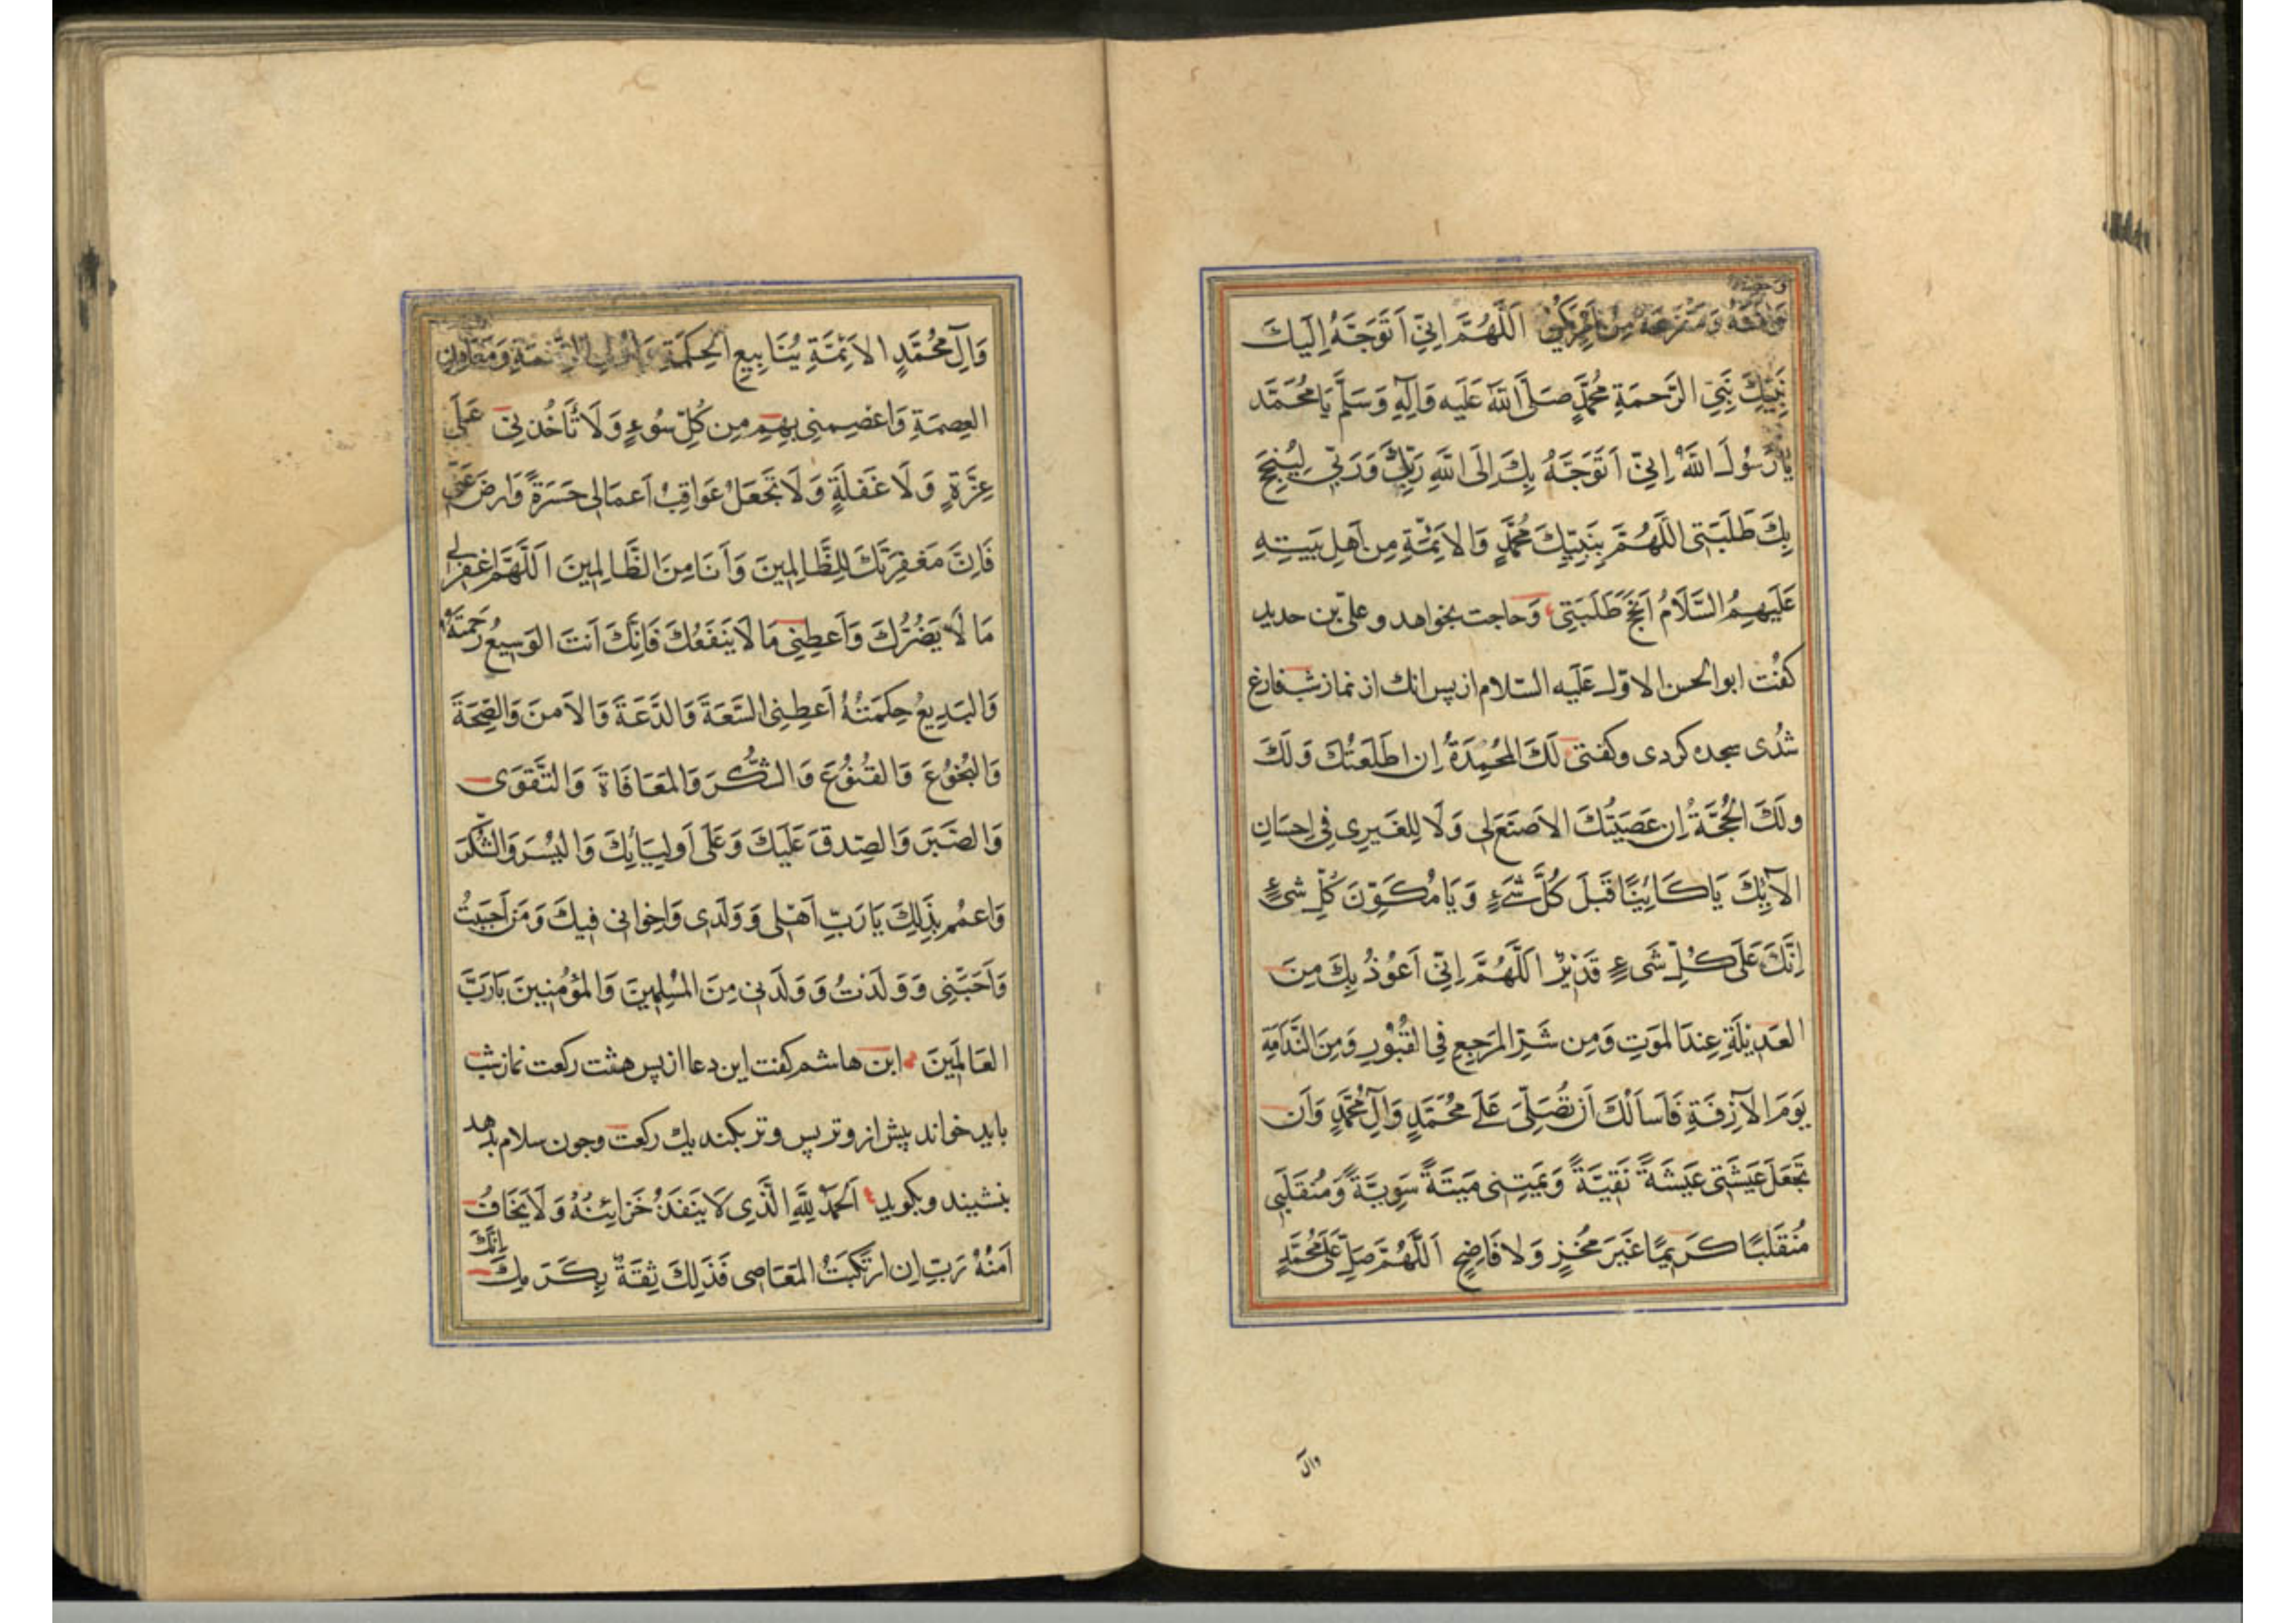 وَمَنْزَعَهُ مِنْ اَللَّهُمَّ اِنّي اَتَوَجَّهُ اِلَيكَ
نَبِيِّكَ نَبِيِّ الرَّحمَةِ مُحَمَّدٍ صَلَّى اللهَ عَلَيه وَآلِهِ وَسَلَّم يَا مُحَمَّد
يَا رَسُولَ اللَّهُ اِنيّ اَتَوَجَّهُ بِكَ اِلَى اللَّهِ رَبِّكَ وَرَبّي لِيُنجِحَ
بِكَ طَلَبَتي اللَّهُمَّ بِنَبِيِّكَ مُحَمَّدٍ وَالاَئِمَّةِ مِن اَهلِ بَيتِهِ
عَلَيهِمُ السَّلَامُ اَنجِح طَلَبَتِي وَحاجت بخواهد و علىّ بن حديد
كفُت ابو الحسن الاوّل عَلَيه السّلام از پس انك از نماز شب فارغ
شدُى سجده كردى وكفتى لَكَ المحُمِدَةُ اِن اطَلَعتُكَ وَلَكَ
ولَكَ الحُجَّةُ اِن عَصَيتُكَ الاَصنَعَ لي وَلَا لِلغَيرِى في اِحسَانِ
الآبِكَ يَا كَائِينًا قَبلَ كُلَّ شَىءٍ وَيَا مُكَوِّنَ كُلِّ شىءٍ
اِنَّكَ عَلَى كُلِّ شَىءٍ قَدَيْرٌ اَللَّهُمَّ اِنّي اَعوُذُ بِكَ مِنَ
العَدِيلَةِ عِندَ الموَتِ وَمِن شَرِّ المَرجِعِ فِي القُبُوْرِ وَمِنَ النَّدَامَةِ
يَومَ الآزِفَةِ فَاَسأَلكَ اَن تُصَلّىَ عَلے محُمَّدٍ وَآلِ مُحَمَّدٍ وَاَن
تَجعَلَ عَيشَتي عَيشَةً نَقِيَّةً وَمَيتِني مَيتَةً سَوِيَّةً وَمُنقَلَبي
مُنقَلَبًا كَرَيمًا غَيرَ مخُزٍ وَلا فَاضِحٍ اَللَّهُمَّ صَلِّ عَلى مُحَمَّدٍ
وال
وَآلِ مُحُمَّدٍ الاَئِمَّةِ يُنَابِيعِ الحِكمَةِ
العِصمَةِ وَاعصِمنِى بِهِم مِن كُلِّ سُوءٍ وَلَا تُأَخُذنيّ عَلَى
غِرَّةٍ وَلَا غَفلَةٍ وَلَا تجَعَل عَوَاقِبَ اَعمَالى حَسَرَةً وَارضَ عَنّى
فَاِنَّ مَغفِرَتَكَ لِلظَّالِمِينَ وَأَنَا مِنَ الظَّالِمِينَ اَللَّهُمَّ اغفِر لي
مَا لَا يَضُرُّكَ وَاَعطِنِى مَا لَا يَنفَعُكَ فَاِنَّكَ اَنتَ الوَسِيعُ رَحمَتَهُ
وَالبَدِيعُ حِكمَتُهُ اَعطِنِى السَّعَةَ وَالدَّعَةَ وَالاَمنَ وَالصِّحَةَ
وَالبُخوُعَ وَالقُنوُعَ وَالشُّكرَ وَالمعَافَاةَ وَالتَّقوَى
وَالصَّبَرَ وَالصِدقَ عَلَيكَ وَعَلَى اَولِيَائِكَ وَاليُسرَ وَالشُّكرَ
وَاعمُم بِذَلِكَ يَا رَبِّ اَهلى وَوَلَدى وَاِخوانى فيِكَ وَمَن اَحبَبتُ
وَاَحَبَّنِى وَوَلَدتُ وَوَلَدَنى مِنَ المُسلِمِينَ وَالمؤمِنِينَ يَا رَبَّ
العَالَمِينَ ابن هاشم كفت اين دعا از پس هشت ركعت نماز شب
بايد خواند پيش از وتر پس وتر بكند يك ركعت وجون سلام بدهد
بنشيند وبكويد اَلحَمدُ لِلّهِ الَّذِى لَا يَنفَدُ خَزائِنُهُ وَلَا يَخَافُ
اَمنُهُ رَبِّ اِن ارتَكَبتُ المَعَاصِى فَذَلِكَ ثِقَةٌ بِكَرَمِكَ اِنَّكَ